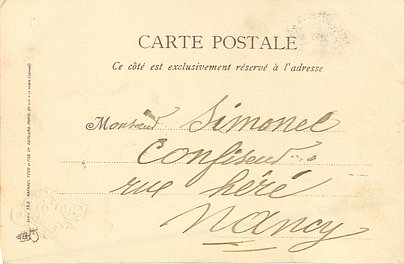 CARTE POSTALE
Ce côté est exclusivement réservé à l'adresse
Monsieur Simonel
Confiseur
rue héré
Nancy